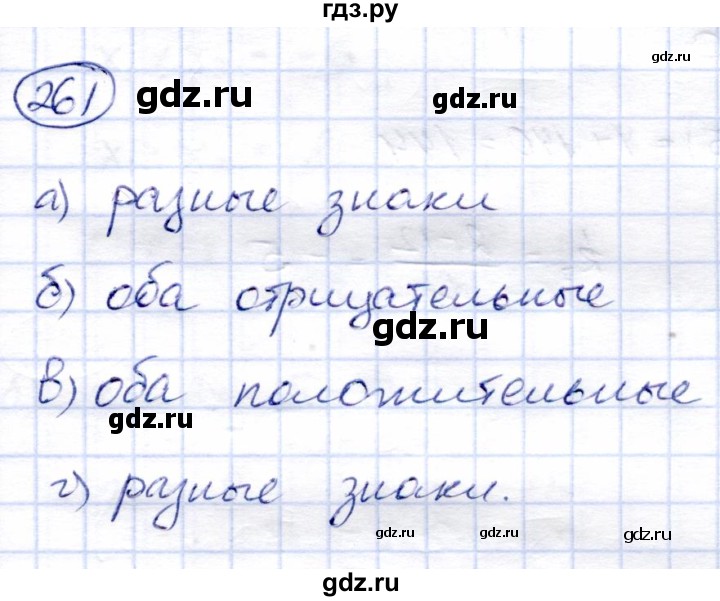 гдз.ру
gdz.ru
261
gdz.ru
gdz.ru
а) разные знаки
б) оба отрицательные
gdz.ru
в) оба положительные
gdz.ru
г) разные знаки.
gdz.ru
gdz.ru
gdz.ru
gdz.ru